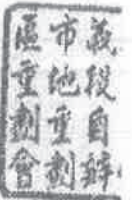 義段自辦
市地重劃
區重劃會